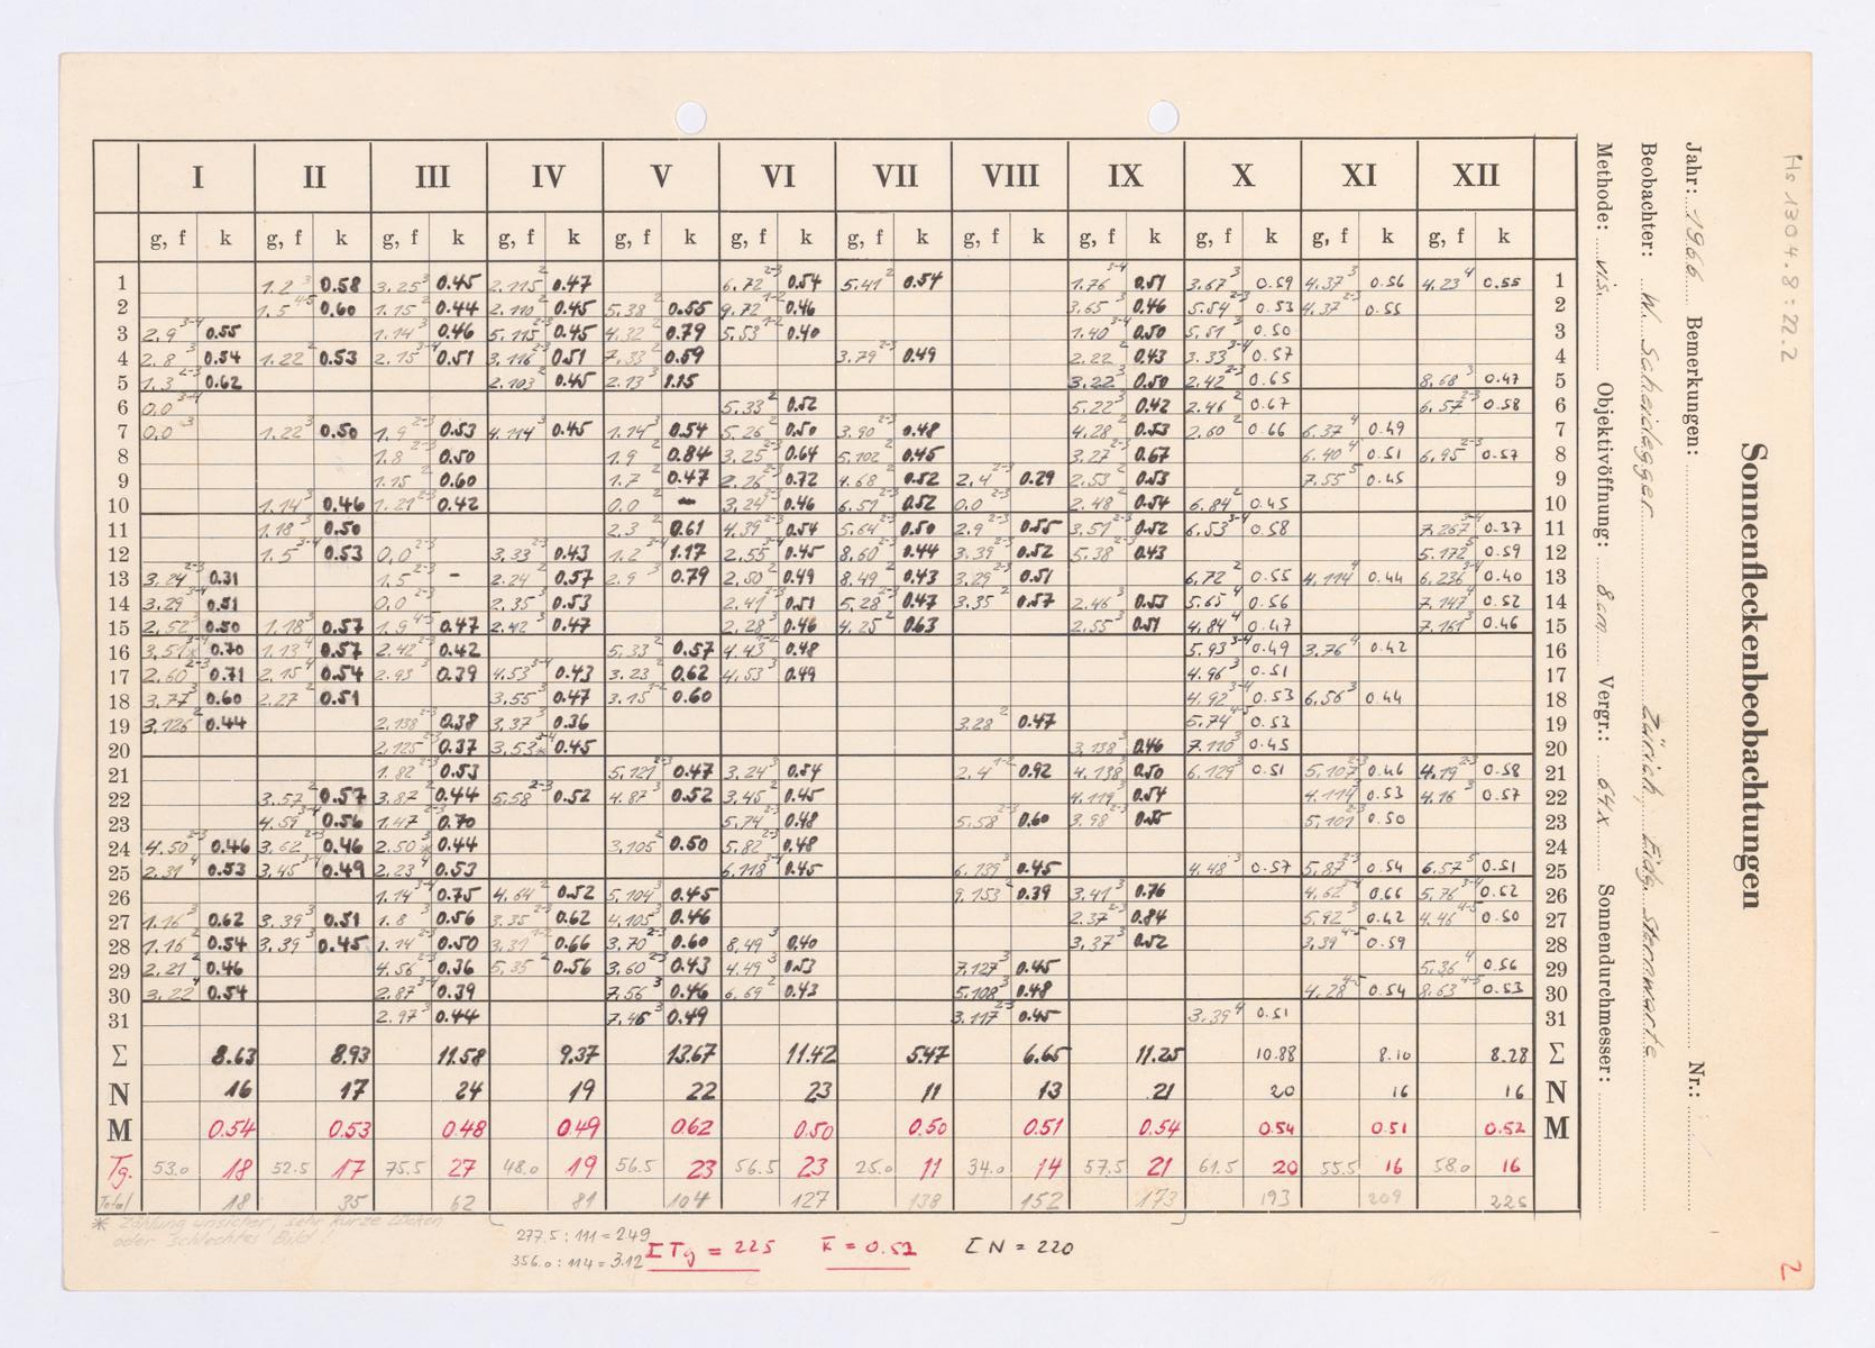 Hs 1304.8:22.2
Sonnenfleckenbeobachtungen
Jahr: 1966 Bemerkungen: Nr.:
Beobachter: W. Scheidegger Zürich, Eidg. Sternwarte
Methode: vis. Objektivöffnung: 8 cm Vergr.: 64x Sonnendurchmesser:
I II III IV V VI VII VIII IX X XI XII
g, f k g, f k g, f k g, f k g, f k g, f k g, f k g, f k g, f k g, f k g, f k g, f k
1 1.2 0.58 3.25 0.45 2.115 0.47 6.72 0.54 5.41 0.54 1.76 0.51 3.67 0.59 4.37 0.56 4.23 0.55 1
2 1.5 0.60 1.15 0.44 2.110 0.45 5.38 0.55 9.72 0.46 3.65 0.46 5.54 0.53 4.37 0.55 2
3 2.9 0.55 1.14 0.46 5.115 0.45 4.32 0.79 5.53 0.40 1.40 0.50 5.51 0.50 3
4 2.8 0.54 1.22 0.53 2.15 0.51 3.116 0.51 7.33 0.59 3.79 0.49 2.22 0.43 3.33 0.57 4
5 1.3 0.62 2.103 0.45 2.13 1.15 3.22 0.50 2.42 0.65 8.68 0.47 5
6 0.0 5.33 0.52 5.22 0.42 2.46 0.67 6.57 0.58 6
7 0.0 1.22 0.50 1.9 0.53 4.114 0.45 1.14 0.54 5.26 0.50 3.90 0.48 4.28 0.53 2.60 0.66 6.37 0.49 7
8 1.8 0.50 1.9 0.84 3.25 0.64 5.102 0.45 3.27 0.67 6.40 0.51 6.95 0.57 8
9 1.15 0.60 1.7 0.47 2.26 0.72 4.68 0.52 2.4 0.29 2.53 0.53 7.55 0.45 9
10 1.14 0.46 1.21 0.42 0.0 - 3.24 0.46 6.51 0.52 0.0 2.48 0.54 6.84 0.45 10
11 1.18 0.50 2.3 0.61 4.39 0.54 5.64 0.50 2.9 0.55 3.51 0.52 6.53 0.58 7.267 0.37 11
12 1.5 0.53 0.0 3.33 0.43 1.2 1.17 2.55 0.45 8.60 0.44 3.39 0.52 5.38 0.43 5.172 0.59 12
13 3.24 0.31 1.5 - 2.24 0.57 2.9 0.79 2.50 0.49 8.49 0.43 3.29 0.51 6.72 0.55 4.114 0.44 6.236 0.40 13
14 3.29 0.51 0.0 2.35 0.53 2.41 0.51 5.28 0.47 3.35 0.57 2.46 0.53 5.65 0.56 7.147 0.52 14
15 2.52 0.50 1.18 0.57 1.9 0.47 2.42 0.47 2.28 0.46 4.25 0.63 2.55 0.51 4.84 0.47 7.161 0.46 15
16 3.51* 0.70 1.13 0.57 2.42 0.42 5.33 0.57 4.43 0.48 5.93 0.49 3.76 0.42 16
17 2.60 0.71 2.15 0.54 2.93 0.39 4.53 0.43 3.23 0.62 4.53 0.49 4.96 0.51 17
18 3.77 0.60 2.27 0.51 3.55 0.47 3.15 0.60 4.92 0.53 6.56 0.44 18
19 3.126 0.44 2.138 0.38 3.37 0.36 3.28 0.47 5.74 0.53 19
20 2.125 0.37 3.53* 0.45 3.138 0.46 7.110 0.45 20
21 1.82 0.53 5.121 0.47 3.24 0.54 2.4 0.92 4.138 0.50 6.129 0.51 5.107 0.46 4.19 0.58 21
22 3.57 0.57 3.87 0.44 5.58 0.52 4.87 0.52 3.45 0.45 4.119 0.54 4.114 0.53 4.16 0.57 22
23 4.59 0.56 1.47 0.70 5.74 0.48 5.58 0.60 3.98 0.55 5.101 0.50 23
24 4.50 0.46 3.62 0.46 2.50* 0.44 3.105 0.50 5.82 0.48 24
25 2.31 0.53 3.45 0.49 2.23 0.53 6.118 0.45 6.139 0.45 4.48 0.57 5.87 0.54 6.57 0.51 25
26 1.14 0.75 4.64 0.52 5.104 0.45 9.153 0.39 3.41 0.76 4.62 0.66 5.76 0.62 26
27 1.16 0.62 3.39 0.51 1.8 0.56 3.35 0.62 4.105 0.46 2.37 0.84 5.92 0.62 4.46 0.50 27
28 1.16 0.54 3.39 0.45 1.14 0.50 3.31 0.66 3.70 0.60 8.49 0.40 3.37 0.52 3.39 0.59 28
29 2.21 0.46 4.56 0.36 5.35 0.56 3.60 0.43 4.49 0.53 7.127 0.45 5.36 0.56 29
30 3.22 0.54 2.87 0.39 7.56 0.46 6.69 0.43 5.108 0.48 4.28 0.54 8.63 0.53 30
31 2.97 0.44 7.45 0.49 3.117 0.45 3.39 0.51 31
Σ 8.63 8.93 11.58 9.37 13.67 11.42 5.47 6.65 11.25 10.88 8.10 8.28 Σ
N 16 17 24 19 22 23 11 13 21 20 16 16 N
M 0.54 0.53 0.48 0.49 0.62 0.50 0.50 0.51 0.54 0.54 0.51 0.52 M
Tg. 53.0 18 52.5 17 75.5 27 48.0 19 56.5 23 56.5 23 25.0 11 34.0 14 57.5 21 61.5 20 55.5 16 58.0 16
Total 18 35 62 81 104 127 138 152 173 193 209 225
* Zählung unsicher, sehr kurze Lücken
oder schlechtes Bild!
277.5 : 111 = 2.49
356.0 : 114 = 3.12
ΣTg = 225 k̄ = 0.52 ΣN = 220
2